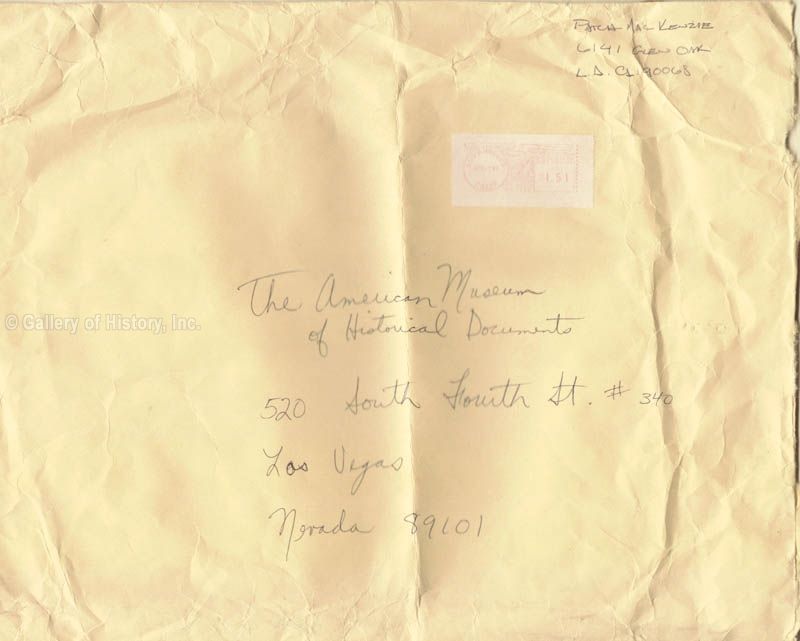 Patch MacKenzie
6141 Glen Oak
L.A. CA 90068
1.51
The American Museum
of Historical Documents
© Gallery of History, Inc.
520 South Fourth St. # 340
Las Vegas
Nevada 89101